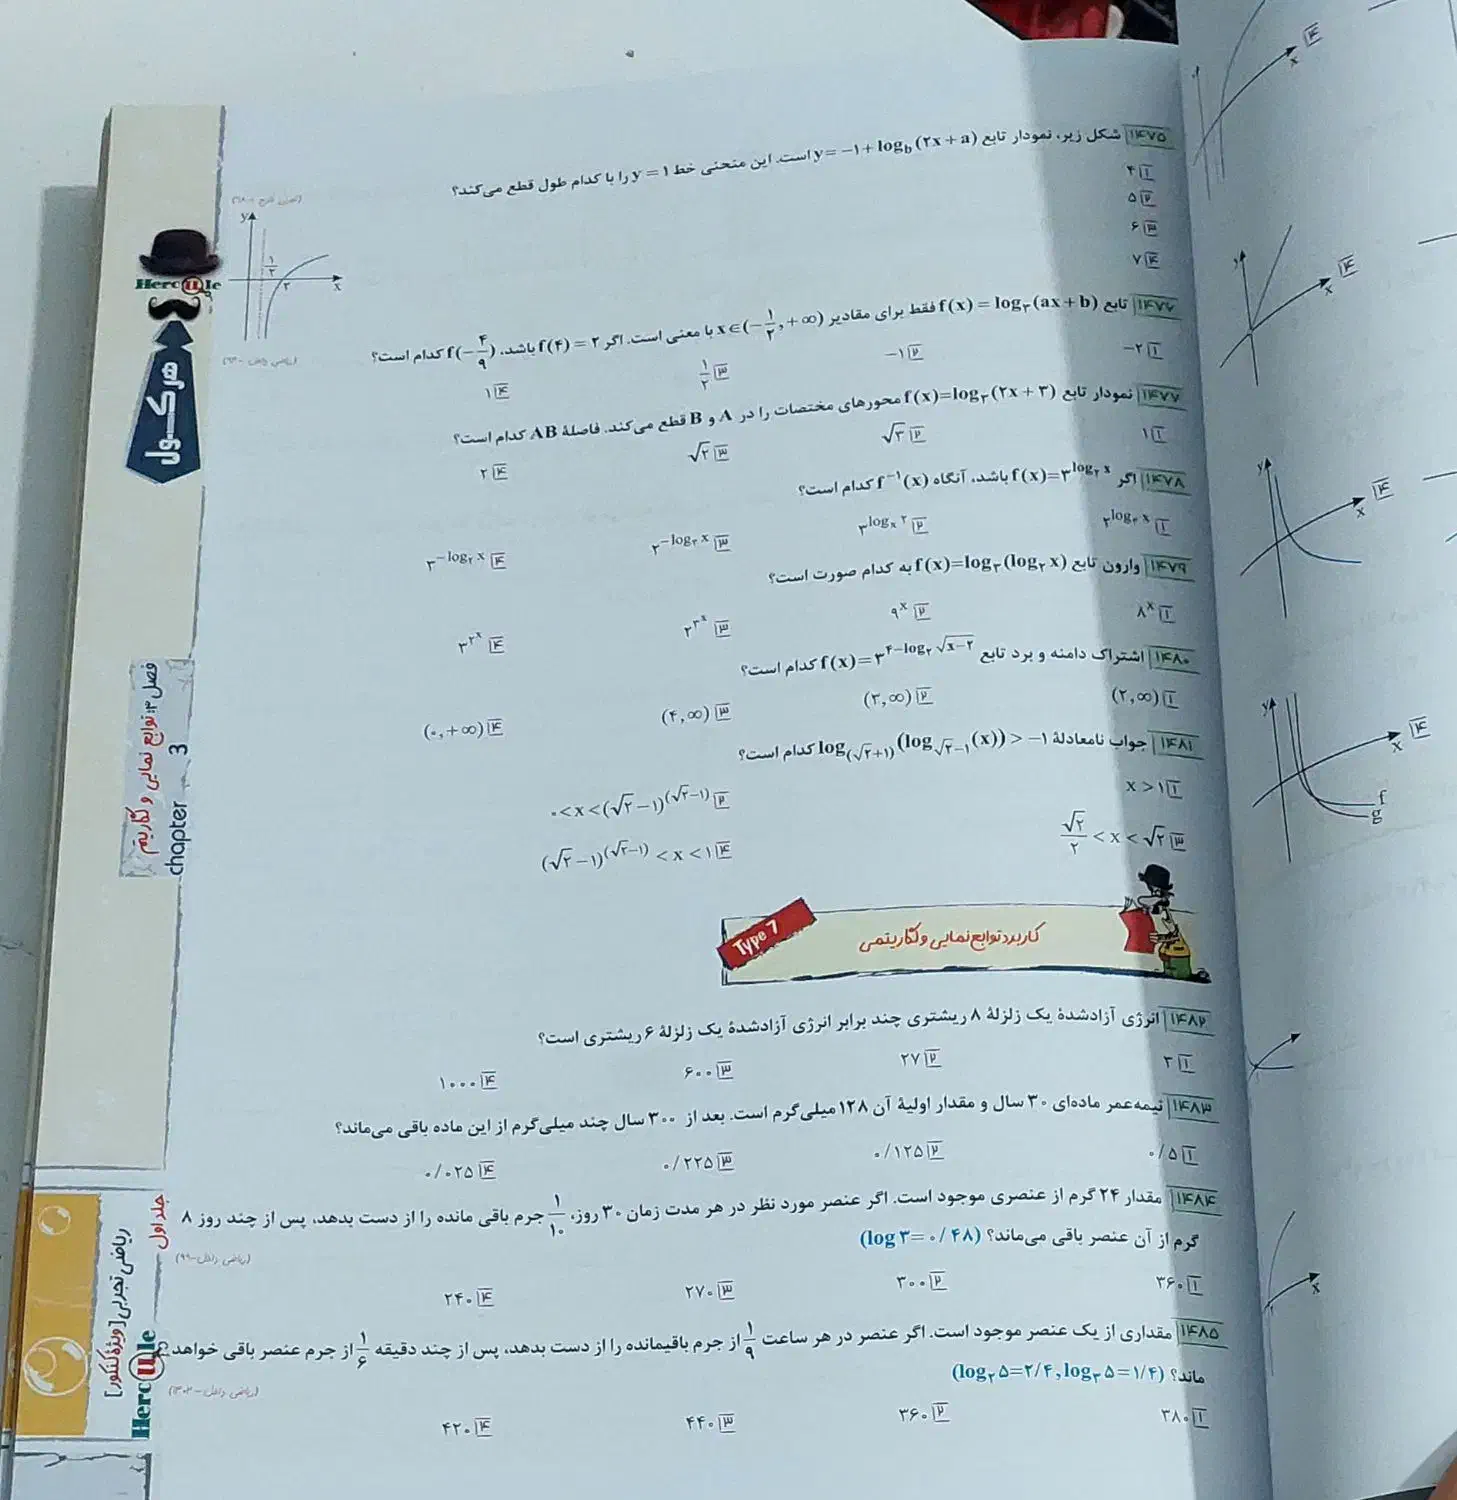 ۱۴۷۵ شکل زیر، نمودار تابع y = −۱ + log_b (۲x + a) است. این منحنی خط y = ۱ را با کدام طول قطع می‌کند؟
۱) ۴
۲) ۵
۳) ۶
۴) ۷
y
۱/۲
۲
x
۱۴۷۶ تابع f(x) = log_۳ (ax + b) فقط برای مقادیر x ∈ (−۱/۲, +∞) با معنی است. اگر f(۴) = ۲ باشد، f(−۴/۹) کدام است؟
(ریاضی داخل - ۹۳)
۱) −۲
۲) −۱
۳) ۱/۲
۴) ۱
۱۴۷۷ نمودار تابع f(x) = log_۳ (۲x + ۳) محورهای مختصات را در A و B قطع می‌کند. فاصلهٔ AB کدام است؟
۱) ۱
۲) √۳
۳) √۲
۴) ۲
۱۴۷۸ اگر f(x) = ۳^{log_۲ x} باشد، آنگاه f⁻¹(x) کدام است؟
۱) ۲^{log_۳ x}
۲) ۳^{log_x ۲}
۳) ۲^{−log_۳ x}
۴) ۳^{−log_۲ x}
۱۴۷۹ وارون تابع f(x) = log_۳ (log_۲ x) به کدام صورت است؟
۱) ۸^x
۲) ۹^x
۳) ۲^{۳^x}
۴) ۳^{۲^x}
۱۴۸۰ اشتراک دامنه و برد تابع f(x) = ۳^{۴−log_۲ √(x−۲)} کدام است؟
۱) (۲, ∞)
۲) (۳, ∞)
۳) (۴, ∞)
۴) (۰, +∞)
۱۴۸۱ جواب نامعادلهٔ log_{(√۲+۱)} (log_{√۲−۱} (x)) > −۱ کدام است؟
۱) x > ۱
۲) ۰ < x < (√۲ − ۱)^{(√۲−۱)}
۳) √۲/۲ < x < √۲
۴) (√۲ − ۱)^{(√۲−۱)} < x < ۱
Type 7
کاربرد توابع نمایی و لگاریتمی
۱۴۸۲ انرژی آزادشدهٔ یک زلزلهٔ ۸ ریشتری چند برابر انرژی آزادشدهٔ یک زلزلهٔ ۶ ریشتری است؟
۱) ۳
۲) ۲۷
۳) ۶۰۰
۴) ۱۰۰۰
۱۴۸۳ نیمه‌عمر ماده‌ای ۳۰ سال و مقدار اولیهٔ آن ۱۲۸ میلی‌گرم است. بعد از ۳۰۰ سال چند میلی‌گرم از این ماده باقی می‌ماند؟
۱) ۰/۵
۲) ۰/۱۲۵
۳) ۰/۲۲۵
۴) ۰/۰۲۵
۱۴۸۴ مقدار ۲۴ گرم از عنصری موجود است. اگر عنصر مورد نظر در هر مدت زمان ۳۰ روز، ۱/۱۰ جرم باقی مانده را از دست بدهد، پس از چند روز ۸
گرم از آن عنصر باقی می‌ماند؟ (log ۳ = ۰/۴۸)
(ریاضی داخل-۹۹)
۱) ۳۶۰
۲) ۳۰۰
۳) ۲۷۰
۴) ۲۴۰
۱۴۸۵ مقداری از یک عنصر موجود است. اگر عنصر در هر ساعت ۱/۹ از جرم باقیمانده را از دست بدهد، پس از چند دقیقه ۱/۶ از جرم عنصر باقی خواهد
ماند؟ (log_۲ ۵ = ۲/۴, log_۳ ۵ = ۱/۴)
۱) ۳۸۰
۲) ۳۶۰
۳) ۴۴۰
۴) ۴۲۰
Hercule
هرکـول
فصل ۳: توابع نمایی و لگاریتم
chapter 3
جلد اول
ریاضی تجربی [ویژه کنکور]
Hercule
۴ x
۴ y x
۴ y x
۴ y x f g
x